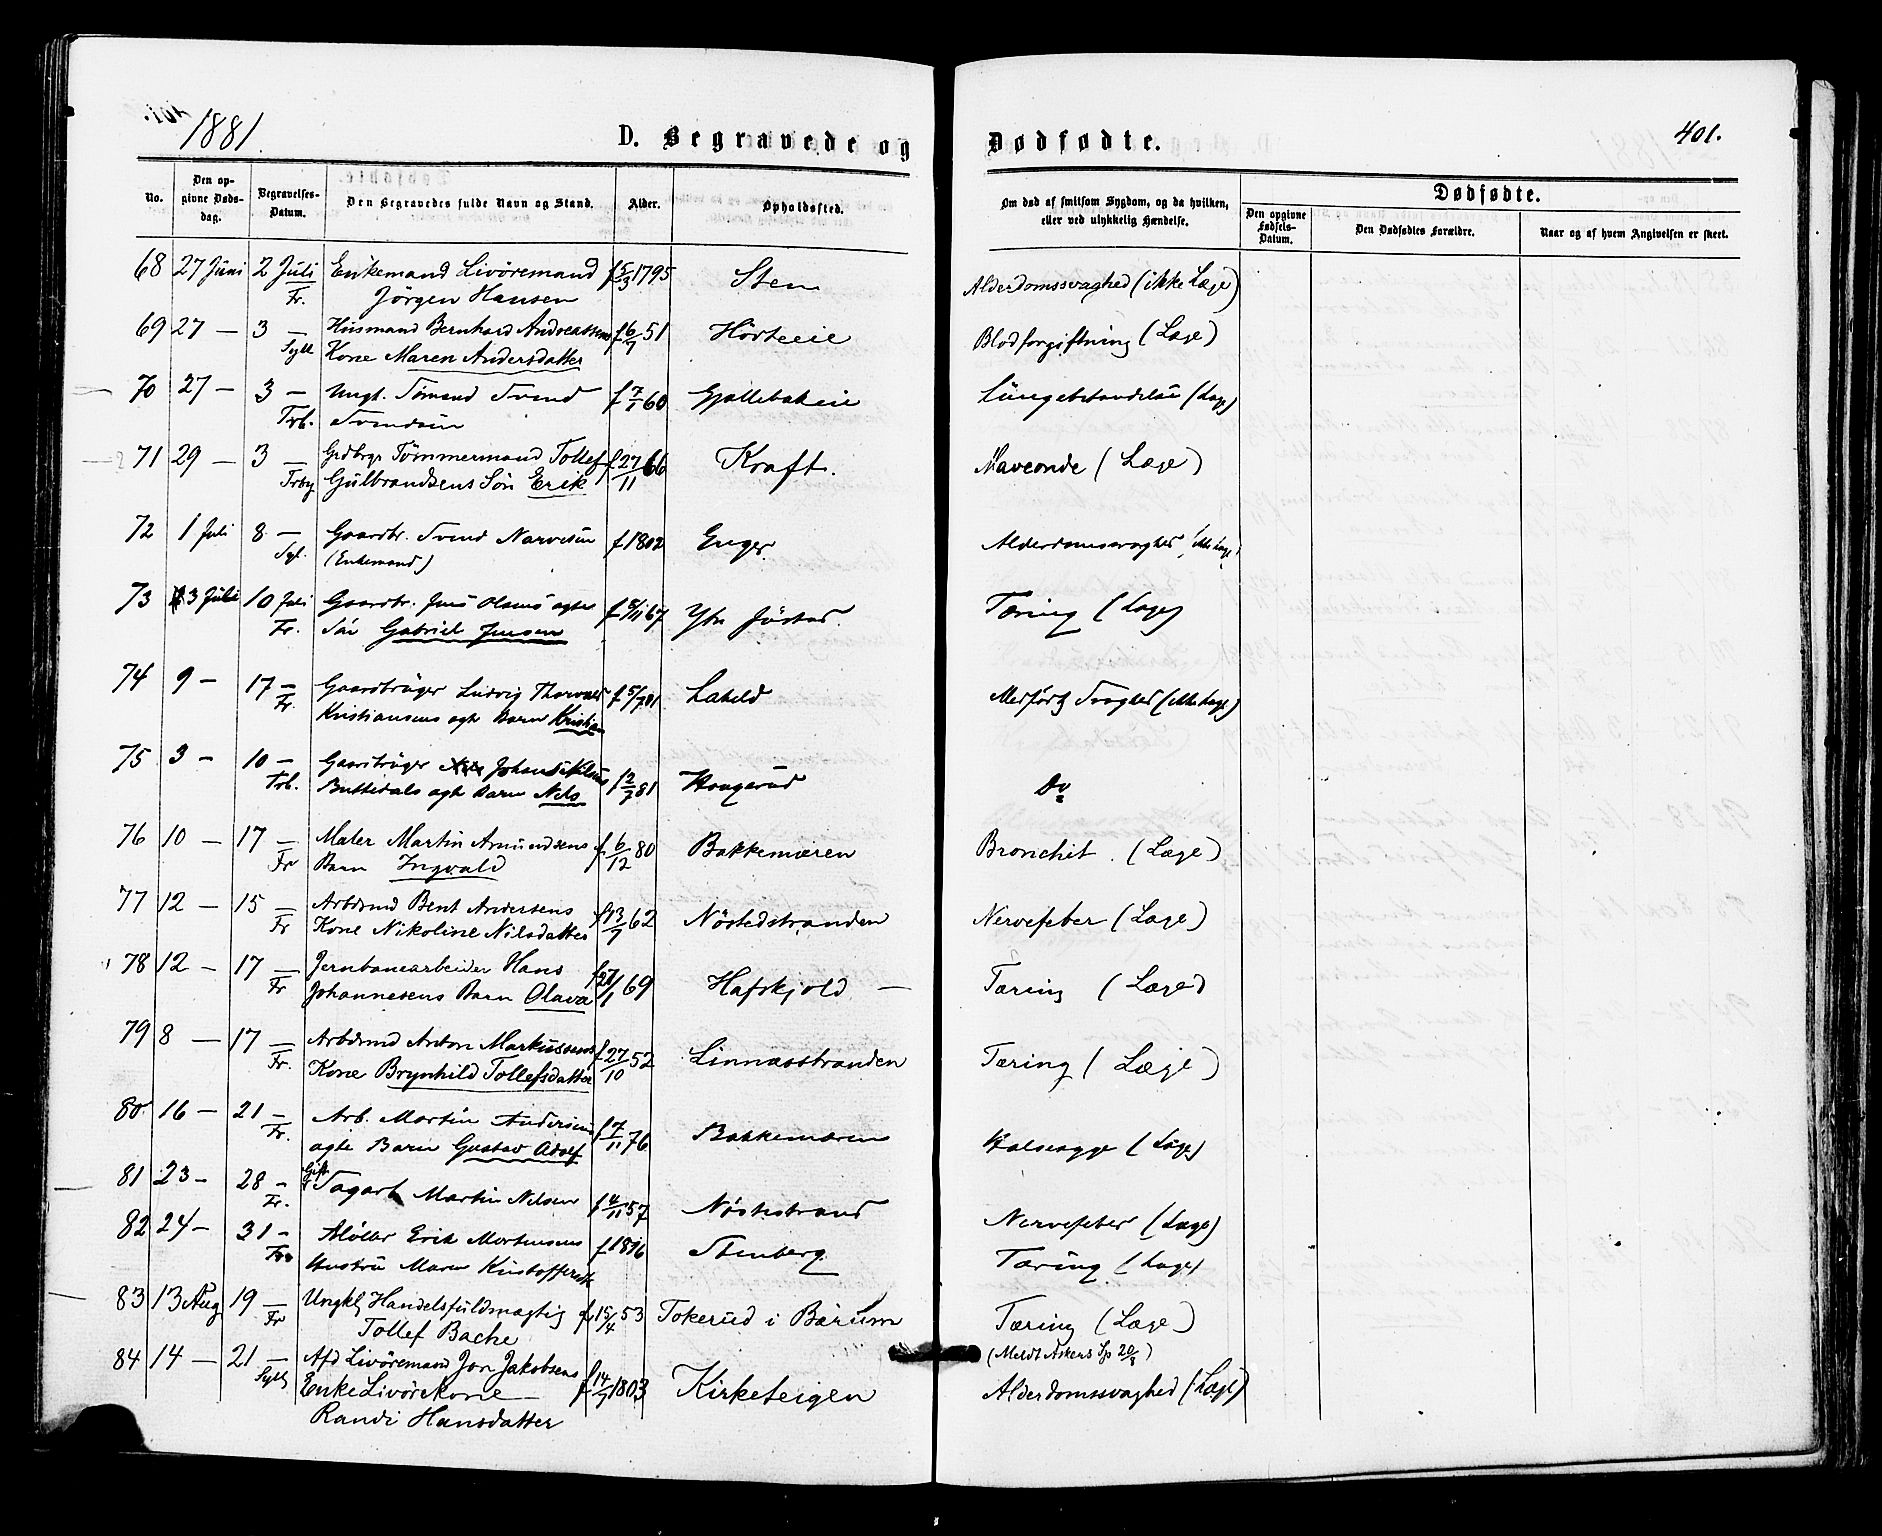 1881.
D. Begravede og Dødfødte.
401.
No.
Den opgivne Døds-dag.
Begravelses-Datum.
Den Begravedes fulde Navn og Stand.
Alder.
Opholdssted.
Om død af smitsom Sygdom, og da hvilken, eller ved ulykkelig Hændelse.
Dødfødte.
Den opgivne Fødsels-Datum.
Den Dødfødtes Forældre.
Naar og af hvem Angivelsen er skeet.
68 27 Juni 2 Juli Enkemand Livøremand f 5/3 1795 Sten Alderdomssvaghed (ikke Læge)
Fr. Jörgen Hansen
69 27 — 3 — Husmand Bernhard Andreassens f 6/7 51 Hörteeie Blodforgiftning (Læge)
Syll Kone Maren Andersdatter
70 27 — 3 — Ungk. Svend f 7/1 60 Gjellebekeie Lungebetændelse (Læge)
Trb. Svendsen
71 29 — 3 — Grdbrgr Tömmermand Tollef f 27/11 66 Kraft. Maveonde (Læge)
Trby Gulbrandsens Sön Erik
72 1 Juli 8 — Gaardbr. Svend Narvesen f 1802 Enger. Alderdomssvaghed (ikke Læge)
Syl. (Enkemand)
73 3 Juli 10 Juli Gaardbr. Jens Olsens ægte f 5/11 67 Ytre Jöstad. Tæring (Læge)
Fr. Sön Gabriel Jensen
74 9 — 17 — Gaardbruger Ludvig Thorvald f 5/7 81 Laheld Medfödt Svaghed (ikke Læge)
Fr. Kristiansens ægte Barn Kristian
75 3 — 10 — Gaardbruger Johan Nilsens f 2/7 81 Haagerud Do
Trb. Buttedals ægte Barn Nils
76 10 — 17 — Maler Martin Amundsens f 6/12 80 Bakkemæren Bronchit. (Læge)
Fr Barn Ingvald
77 12 — 15 — Arbdsmd Bent Andersens f 13/7 62 Nöstedstranden Nervefeber (Læge)
Fr Kone Nikoline Nilsdatter
78 12 — 17 — Jernbanearbeider Hans f 27/1 69 Hafskjold — Tæring (Læge)
Fr Johannesens Barn Olava
79 8 — 17 — Arbdsmd Anton Markussens f 27/10 52 Linnæsstranden Tæring (Læge)
Fr. Kone Brynhild Tollefsdatter
80 16 — 21 — Arb. Martin Andersens f 7/11 76 Bakkemæren Halssyge (Læge)
Fr. ægte Barn Gustav Adolf
81 23 — 28 — Gift Sagarb. Martin Nilsen f 4/11 57 Nöstestrand Nervefeber (Læge)
Fr.
82 24 — 31 — Möller Erik Mortensens f 1816 Stenberg Tæring (Læge)
Hustru Maren Kristoffersdtr
83 13 Aug 19 — Ungkl Handelsfuldmægtig f 15/4 53 Tokerud i Bærum Tæring (Læge)
Fr Tollef Bache
(Meldt Askers Sp 20/8)
84 14 — 21 — Afd Livöremand Jon Jakobsens f 14/7 1803 Kirketeigen Alderdomssvaghed (Læge)
Syll Enke Livörekone
Randi Hansdatter